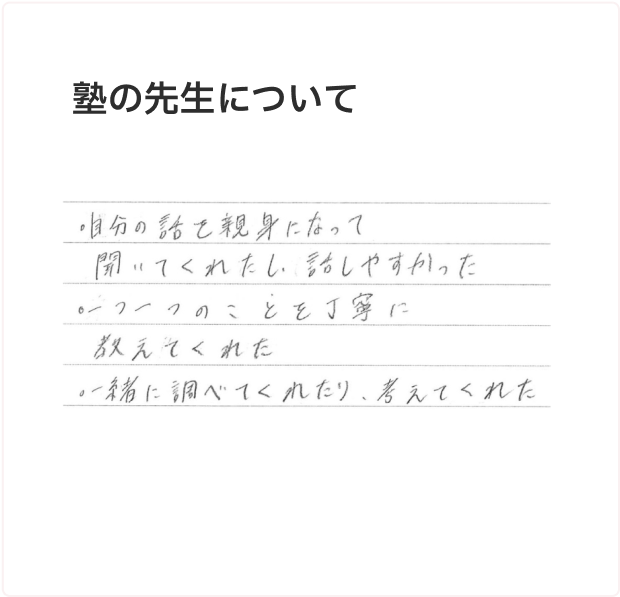 塾の先生について
・自分の話を親身になって
聞いてくれたし、話しやすかった
・一つ一つのことを丁寧に
教えてくれた
・一緒に調べてくれたり、考えてくれた